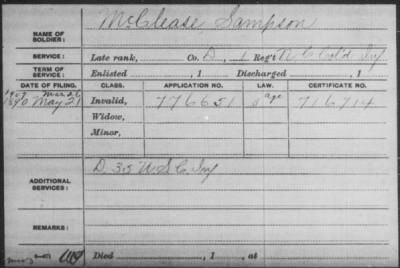 NAME OF SOLDIER: McClease Sampson
SERVICE: Late rank, Co. D, 1 Reg't N.C. Col'd Inf
TERM OF SERVICE: Enlisted , 1 Discharged , 1
DATE OF FILING. CLASS. APPLICATION NO. LAW. CERTIFICATE NO.
1890 May 21 Invalid, 776651 age 716714
Widow,
Minor,
ADDITIONAL SERVICES: D 35 U.S.C. Inf
REMARKS:
Died , 1 , at